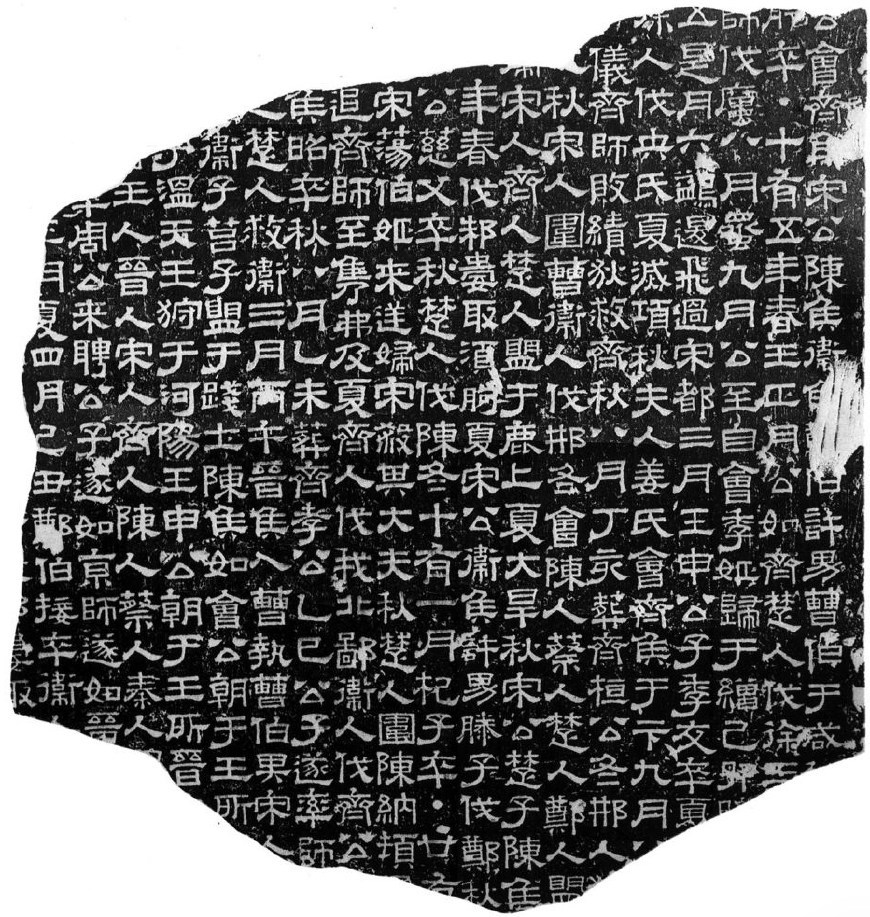 公會齊侯宋公陳侯衛侯伯許男曹伯于咸
肸卒・十有五年春王正月公如齊楚人伐徐三
師伐厲八月螽九月公至自會季姬歸于繒己卯晦
五是月六鶂退飛過宋都三月壬申公子季友卒夏
徐人伐英氏夏滅項秋夫人姜氏會齊侯于卞九月
儀齊師敗績狄救齊秋八月丁亥葬齊桓公冬邢人
秋宋人圍曹衛人伐邢冬會陳人蔡人楚人鄭人盟
宋人齊人楚人盟于鹿上夏大旱秋宋公楚子陳侯
年春伐邾婁取須朐夏宋公衛侯許男滕子伐鄭秋
公慈父卒秋楚人伐陳冬十有一月杞子卒・廿有
宋蕩伯姬來逆婦宋殺其大夫秋楚人圍陳納頓
追齊師至巂弗及夏齊人伐我北鄙衛人伐齊公
侯昭卒秋八月乙未葬齊孝公乙巳公子遂率師
人楚人救衛三月丙午晉侯入曹執曹伯畀宋人
衛子莒子盟于踐土陳侯如會公朝于王所
于溫天王狩于河陽壬申公朝于王所晉
王人晉人宋人齊人陳人蔡人秦人
年周公來聘公子遂如京師遂如晉
月夏四月己丑鄭伯接卒衛人
取